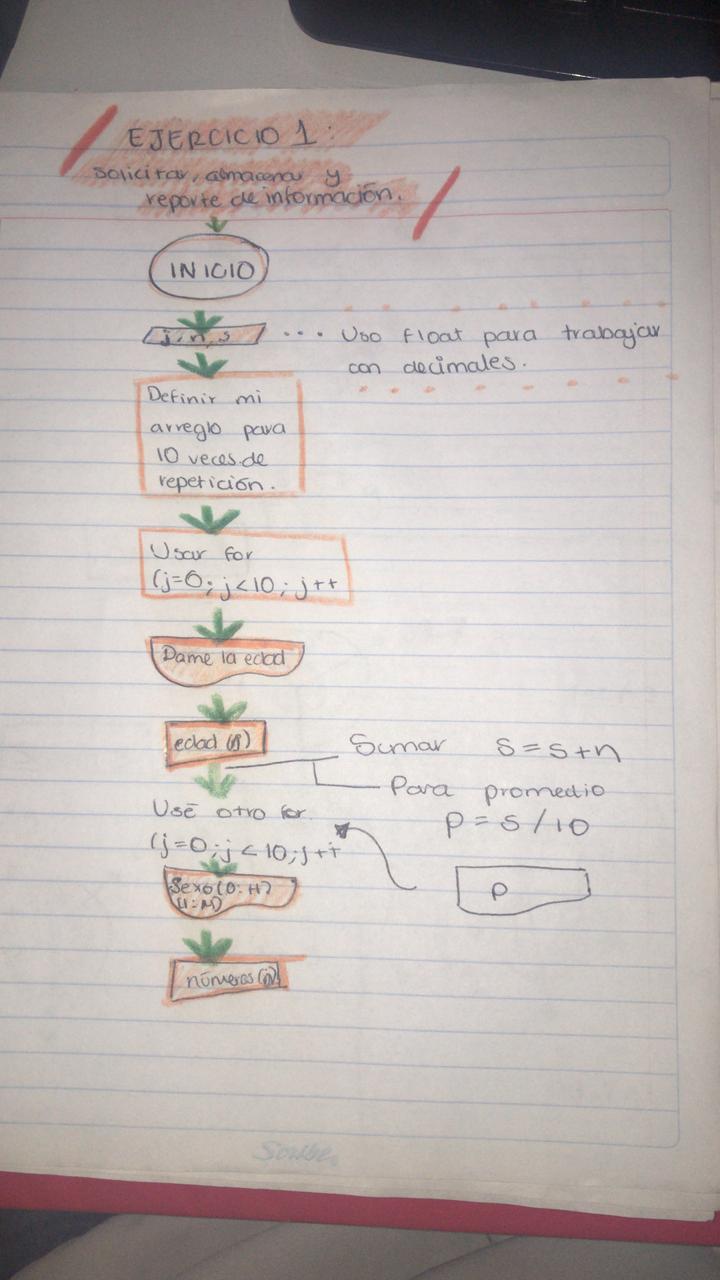 EJERCICIO 1:
Solicitar, almacenar y
reporte de información.
INICIO
j, n, s ... Uso float para trabajar
con decimales.
Definir mi
arreglo para
10 veces de
repetición.
Usar for
(j=0; j<10; j++
Dame la edad
edad (j)
Sumar s=s+n
Para promedio
p=s/10
p
Usé otro for.
(j=0; j<10; j++
Sexo (0:H)
(1:M)
números (j)
Scribe